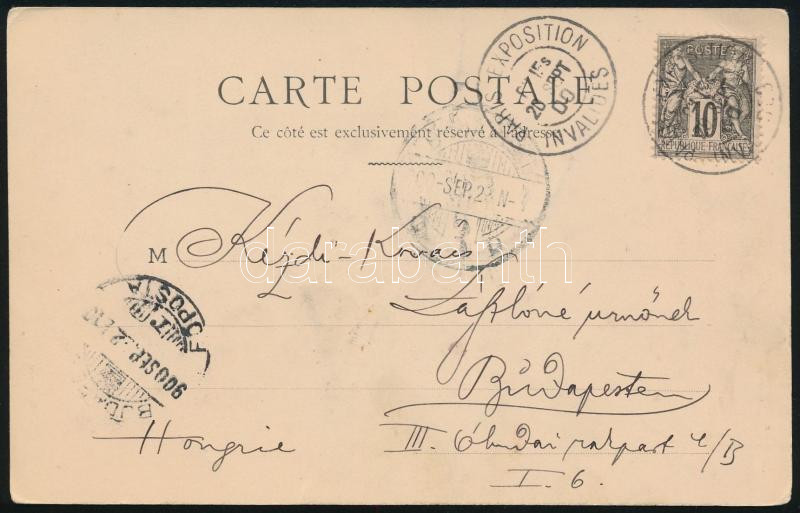 CARTE POSTALE
Ce côté est exclusivement réservé à l'adresse
PARIS EXPOSITION
INVALIDES
SEPT
00
POSTES
10
REPUBLIQUE FRANÇAISE
SEP. 2 N-
3
M Kézdi-Kovács
L
Lászlóné úrnőnek
Budapesten
Hongrie
III. Óbudai rakpart 4/B
I. 6.
FŐPOSTA
900 SEP. 22
darabanth